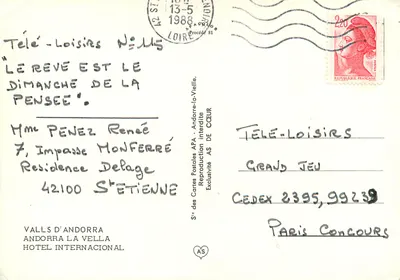 42 ST
13-5
1988
LOIRE
2,20
Télé-Loisirs N° 115
"LE REVE EST LE
DIMANCHE DE LA
PENSEE".
Mme PENEZ Reneé
7, Impasse MONFERRÉ
Residence Delage
42100 St ETIENNE
VALLS D'ANDORRA
ANDORRA LA VELLA
HOTEL INTERNACIONAL
Sté des Cartes Postales APA - Andorre-la-Vieille.
Reproduction interdite
Exclusivité AS DE CŒUR
AS
TELE-LOISIRS
GRAND JEU
CEDEX 2395, 99239
PARIS CONCOURS